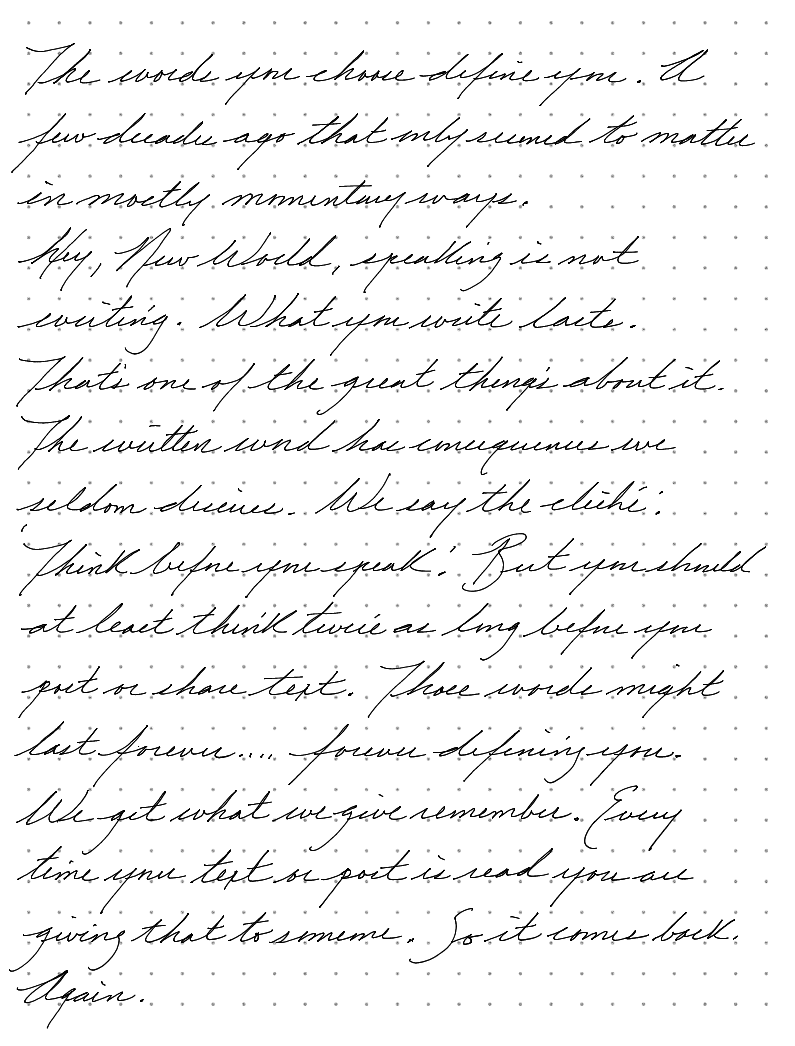 The words you choose define you. A
few decades ago that only seemed to matter
in mostly momentary ways.
Hey, New World, speaking is not
writing. What you write lasts.
That's one of the great things about it.
The written word has consequences we
seldom discuss. We say the cliché:
'Think before you speak'. But you should
at least think twice as long before you
post or share text. Those words might
last forever.... forever defining you.
We get what we give remember. Every
time your text or post is read you are
giving that to someone. So it comes back.
Again.